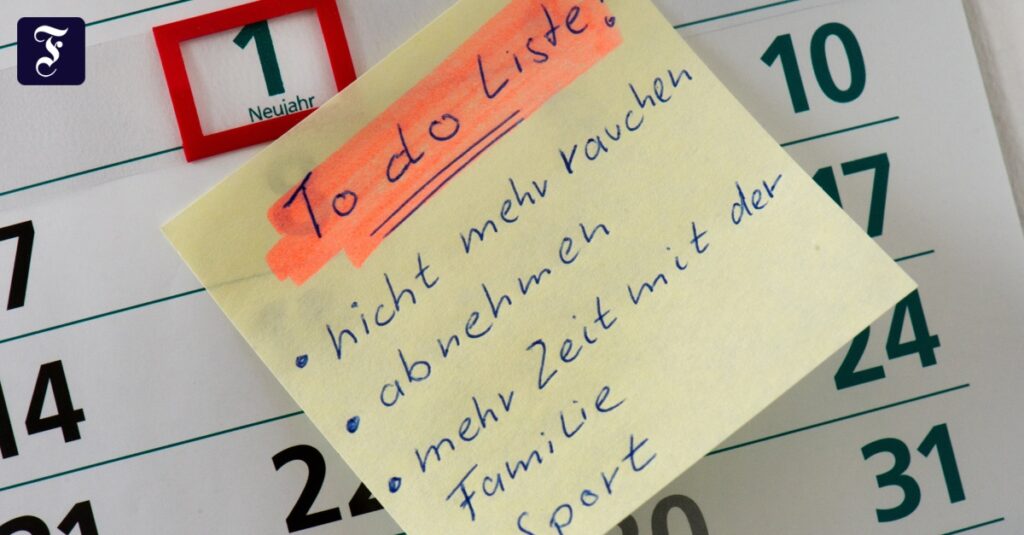 F
1
Neujahr
10
17
24
31
7
14
22
30
To do Liste!
• nicht mehr rauchen
• abnehmen
• mehr Zeit mit der
Familie
Sport